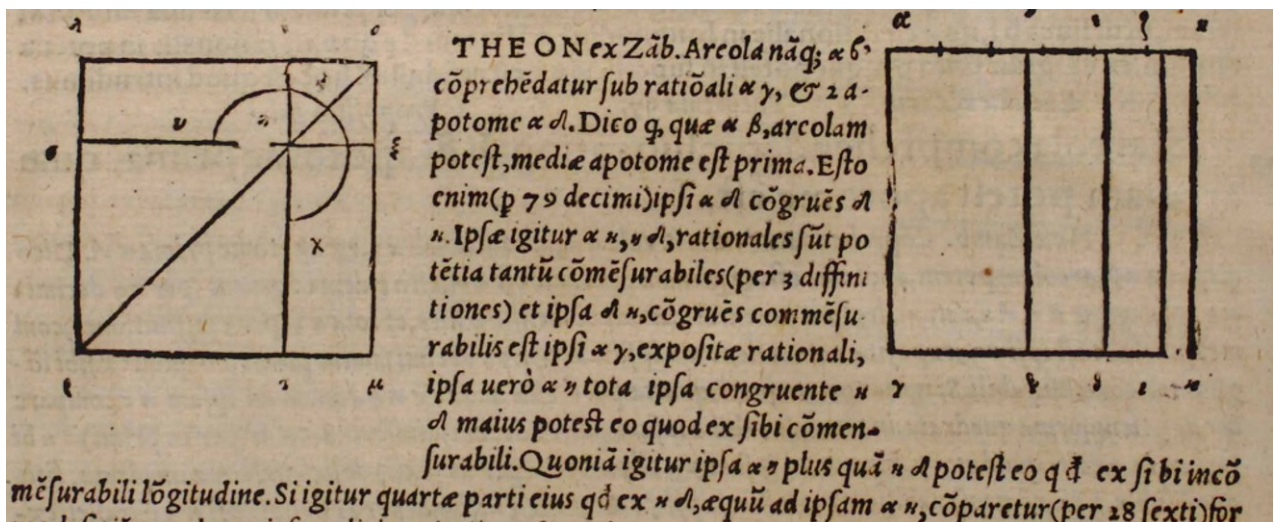 THEON ex Zãb. Areola nãq; α ϐ,
cõprehẽdatur sub ratiõali α γ, & 2 a-
potome α δ. Dico q, quæ α β, areolam
potest, mediæ apotome est prima. Esto
enim (p 79 decimi) ipsi α δ cõgruẽs δ
η. Ipsæ igitur α η, η δ, rationales sũt po
tẽtia tantũ cõmẽsurabiles (per 3 diffini
tiones) et ipsa δ η, cõgruẽs commẽsu
rabilis est ipsi α γ, expositæ rationali,
ipsa uerò α η tota ipsa congruente η
δ maius potest eo quod ex sibi cõmen-
surabili. Quoniã igitur ipsa α η plus quã η δ potest eo qđ ex sibi incõ
mẽsurabili lõgitudine. Si igitur quartæ parti eius qđ ex η δ, æquũ ad ipsam α η, cõparetur (per 28 sexti) for
λ
σ
υ
ξ
χ
μ
α
ε
ζ
η
γ